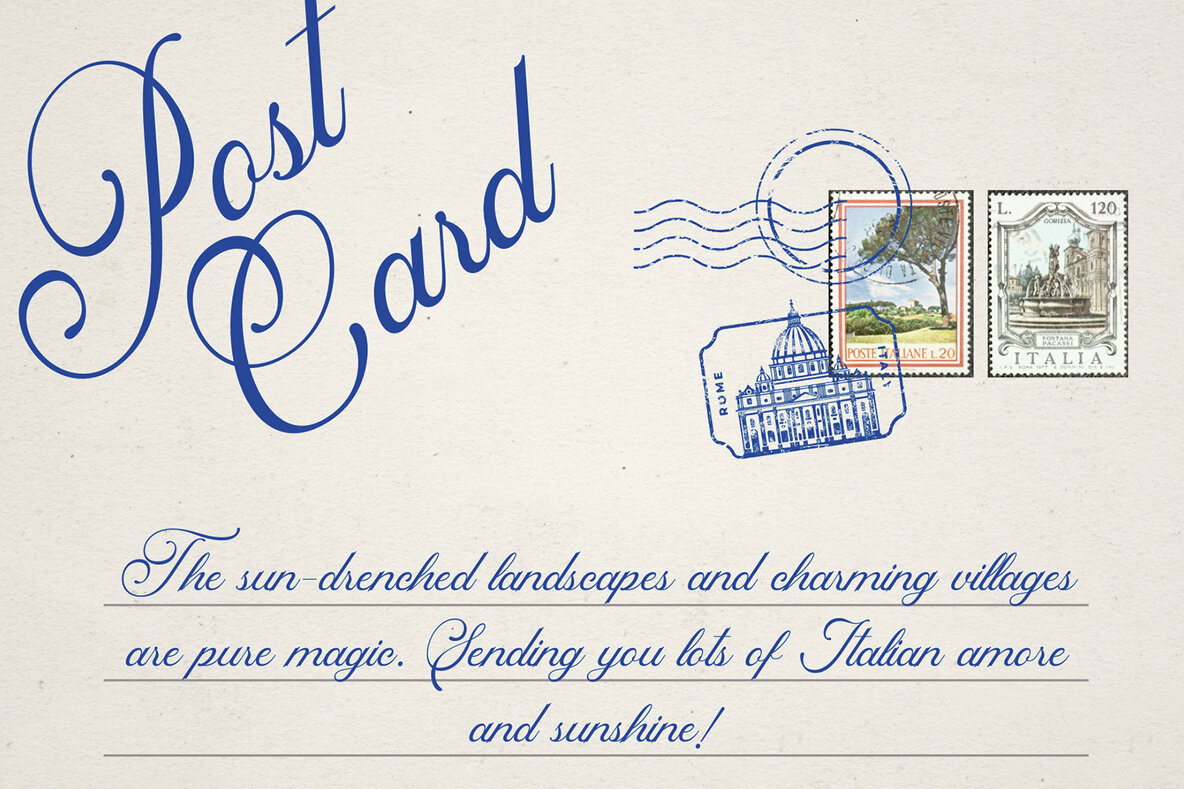 Post
Card
L. 120
GORIZIA
POSTE ITALIANE L.20
FONTANA
PACASSI
ITALIA
ROME
ITALY
The sun-drenched landscapes and charming villages
are pure magic. Sending you lots of Italian amore
and sunshine!